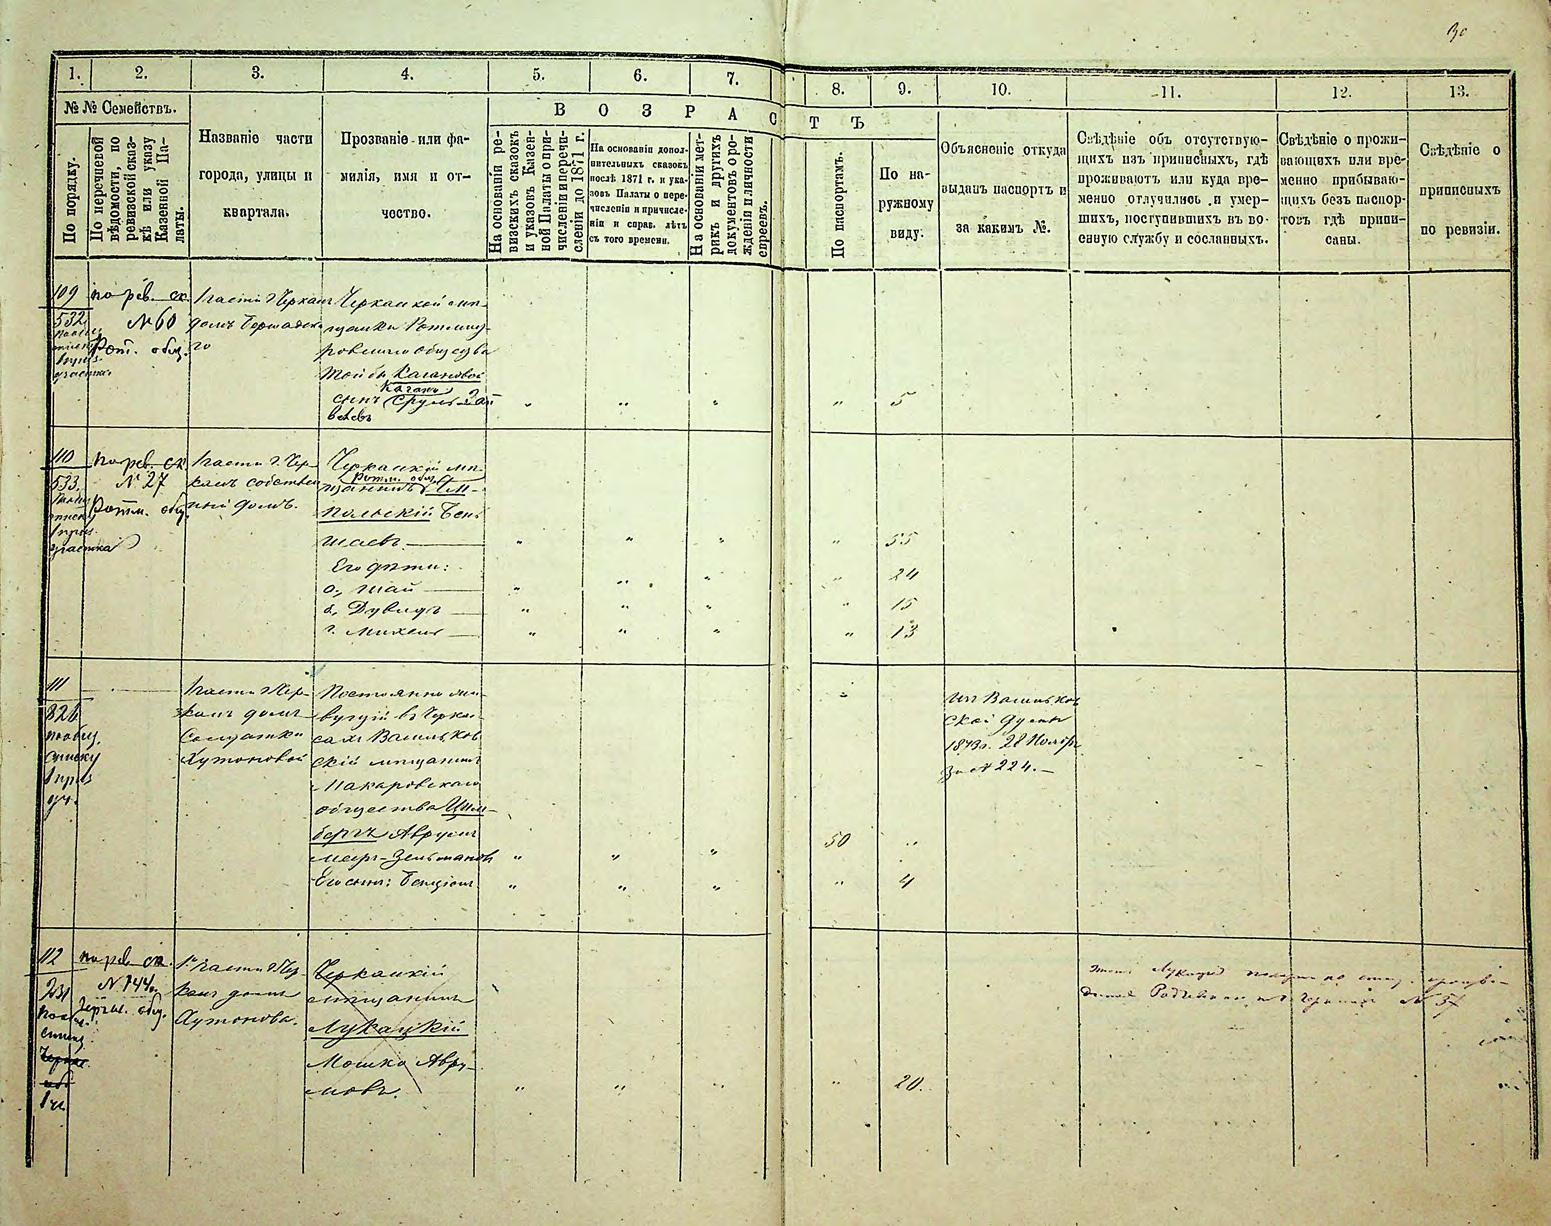 30
1.
2.
3.
4.
5.
6.
7.
8.
9.
10.
11.
12.
13.
№ № Семействъ.
По порядку.
По перечневой
вѣдомости, по
ревизской сказ-
кѣ или указу
Казенной Па-
латы.
Названіе части
города, улицы и
квартала.
Прозваніе или фа-
милія, имя и от-
чество.
ВОЗРАСТЪ
На основаніи ре-
визскихъ сказокъ
и указовъ Казен-
ной Палаты о при-
численіи и перечи-
сленіи до 1871 г.
На основаніи допол-
нительныхъ сказокъ
послѣ 1871 г. и ука-
зовъ Палаты о пере-
численіи и причисле-
ніи и справ. лѣтъ
съ того времени.
На основаніи мет-
рикъ и другихъ
документовъ о ро-
жденіи и личности
евреевъ.
По паспортамъ.
По на-
ружному
виду.
Объясненіе откуда
выданъ паспортъ и
за какимъ №.
Свѣдѣніе объ отсутствую-
щихъ изъ приписныхъ, гдѣ
проживаютъ или куда вре-
менно отлучились и умер-
шихъ, поступившихъ въ во-
енную службу и сосланныхъ.
Свѣдѣніе о прожи-
вающихъ или вре-
менно прибываю-
щихъ безъ паспор-
товъ гдѣ припи-
саны.
Свѣдѣніе о
приписныхъ
по ревизіи.
109
532
по рев. ск.
№ 60
Рот. общ.
1 части г. Черкасъ
домъ
го
Черкаской мѣ-
щанки Ротмист-
ровскаго общества
Кагановой
Каганъ
сынъ Сруль
5
110
533.
1 приз.
участка
по рев. ск.
№ 27
Ротм. общ.
1 части г. Чер-
касъ собствен
ный домъ.
Черкаскій мѣ-
Ротм. общ.
щанинъ Ям-
польскій Бень
Шаевъ
55
Его дѣти:
а., Шая
24
б., Дувидъ
15
г. Михель
13
111
826
по общ.
списку
1 приз
уч.
1 части г. Чер-
касъ домъ
Солдатки
Хутоновой
Постоянно жи-
вущій въ Черкас-
сахъ Васильков
скій мѣщанинъ
Макаровскаго
общества Цим-
бергъ Аврумъ
Меер-Зельмановъ
50
Его сынъ: Бенціонъ
4
Изъ Васильков
ской Думы
1873 г. 28 Ноября
за № 224.
112
231
1 уч
по рев. ск.
№ 144
общ.
1й части г. Чер
касъ домъ
Хутонова.
Черкаскій
мѣщанинъ
Лукацкій
Мошко Авру-
мовъ.
20.
Этотъ Лукацкій
№ 57